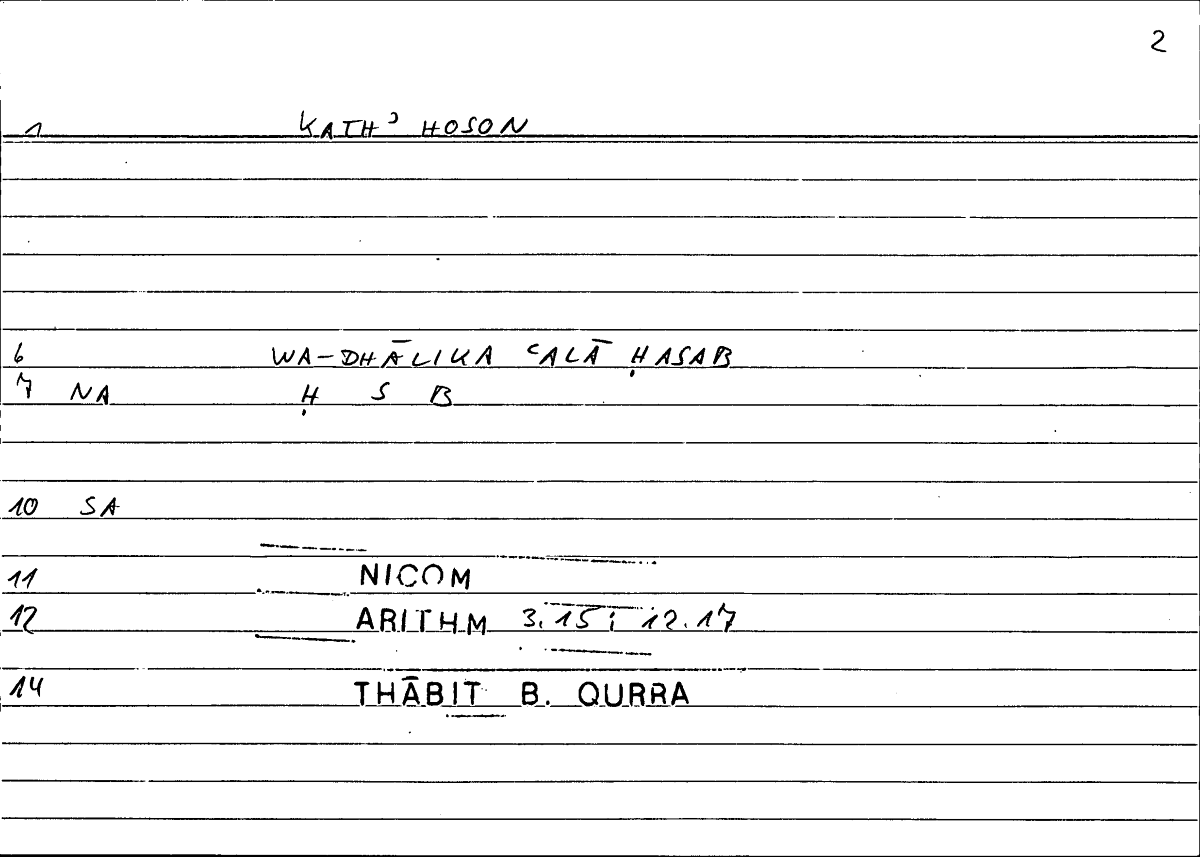 2
1 KATHʾ HOSON
6 WA-DHĀLIKA ʿALĀ ḤASAB
7 NA Ḥ S B
10 SA
11 NICOM
12 ARITHM 3.15; 12.17
14 THĀBIT B. QURRA